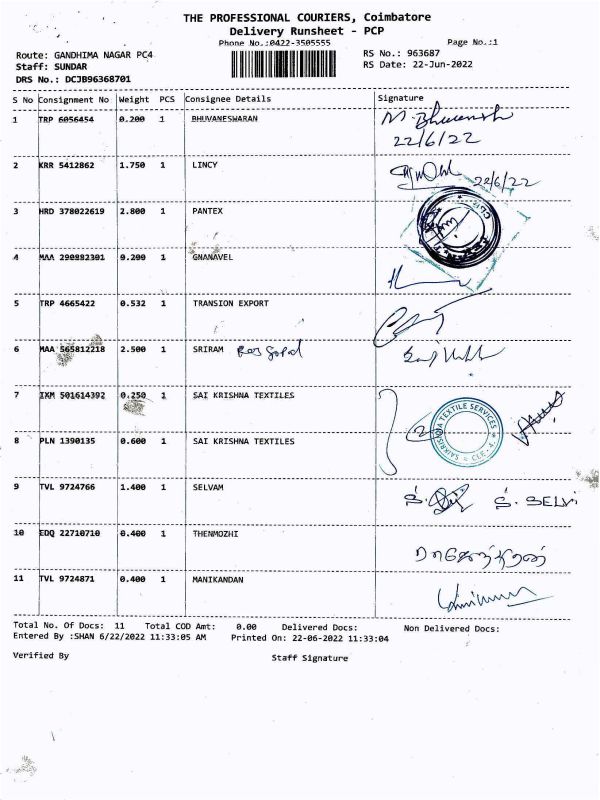 THE PROFESSIONAL COURIERS, Coimbatore
Delivery Runsheet - PCP
Phone No.:0422-3505555 Page No.:1
Route: GANDHIMA NAGAR PC4 RS No.: 963687
Staff: SUNDAR RS Date: 22-Jun-2022
DRS No.: DCJB96368701
S No Consignment No Weight PCS Consignee Details Signature
1 TRP 6056454 0.200 1 BHUVANESWARAN
22/6/22
2 KRR 5412862 1.750 1 LINCY 22/6/22
3 HRD 378022619 2.800 1 PANTEX
4 MAA 290882301 0.200 1 GNANAVEL
5 TRP 4665422 0.532 1 TRANSION EXPORT
6 MAA 565812218 2.500 1 SRIRAM
7 IKM 501614392 0.250 1 SAI KRISHNA TEXTILES
TEXTILE SERVICES
8 PLN 1390135 0.600 1 SAI KRISHNA TEXTILES
9 TVL 9724766 1.400 1 SELVAM S. SELVI
10 EDQ 22710710 0.400 1 THENMOZHI
11 TVL 9724871 0.400 1 MANIKANDAN
Total No. Of Docs: 11 Total COD Amt: 0.00 Delivered Docs: Non Delivered Docs:
Entered By :SHAN 6/22/2022 11:33:05 AM Printed On: 22-06-2022 11:33:04
Verified By Staff Signature